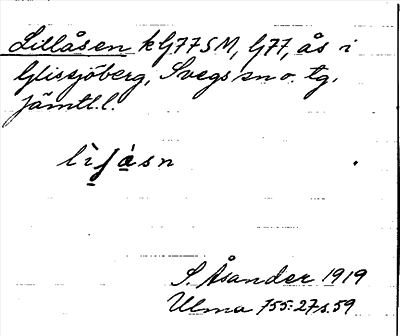 Lillåsen k G77SM, G77, ås i
Glissjöberg, Svegs sn o. tg.
Jämtl.l.
S. Åsander 1919
Ulma 755:27 s.59